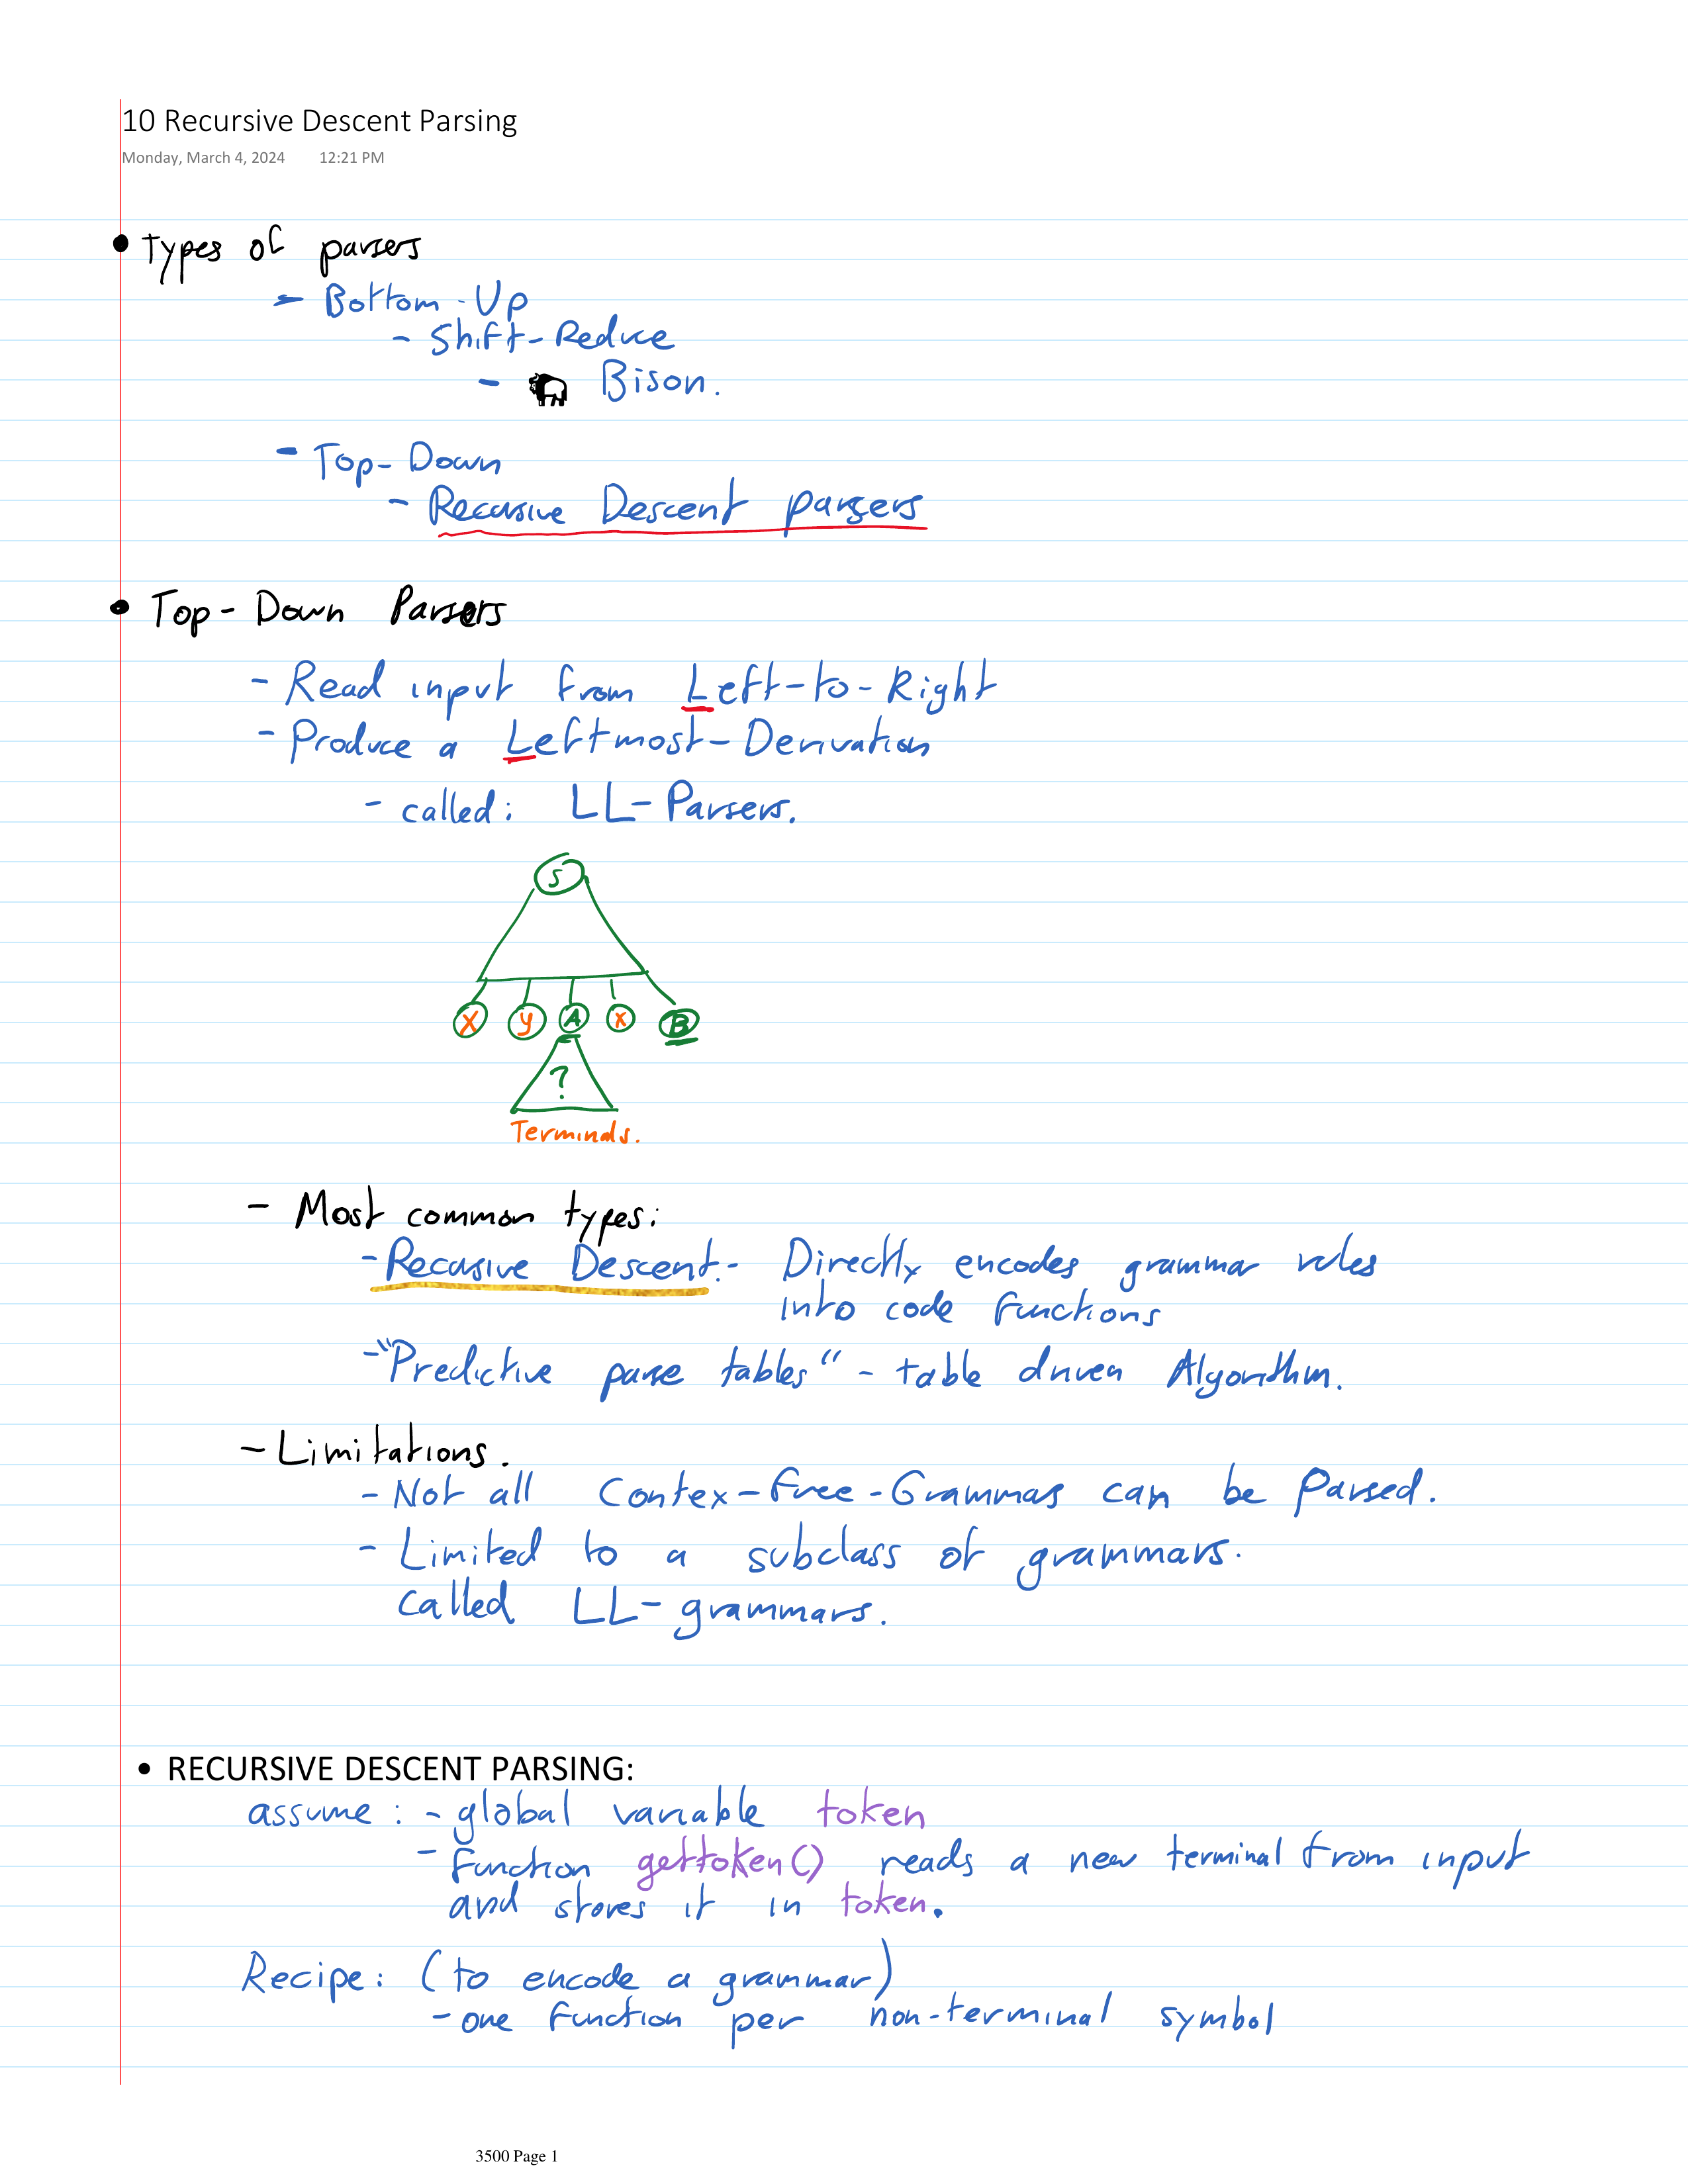 10 Recursive Descent Parsing
Monday, March 4, 2024 12:21 PM
• Types of parsers
- Bottom-Up
- Shift-Reduce
- Bison.
- Top-Down
- Recursive Descent parsers
• Top-Down Parsers
- Read input from Left-to-Right
- Produce a Leftmost-Derivation
- called: LL-Parsers.
S
x y A x B
?
Terminals.
- Most common types:
- Recursive Descent.- Directly encodes grammar rules
into code functions
- "Predictive parse tables" - table driven Algorithm.
- Limitations.
- Not all Contex-Free-Grammas can be Parsed.
- Limited to a subclass of grammars.
called LL-grammars.
• RECURSIVE DESCENT PARSING:
assume: - global variable token
- function gettoken() reads a new terminal from input
and stores it in token.
Recipe: (to encode a grammar)
- one function per non-terminal symbol
3500 Page 1